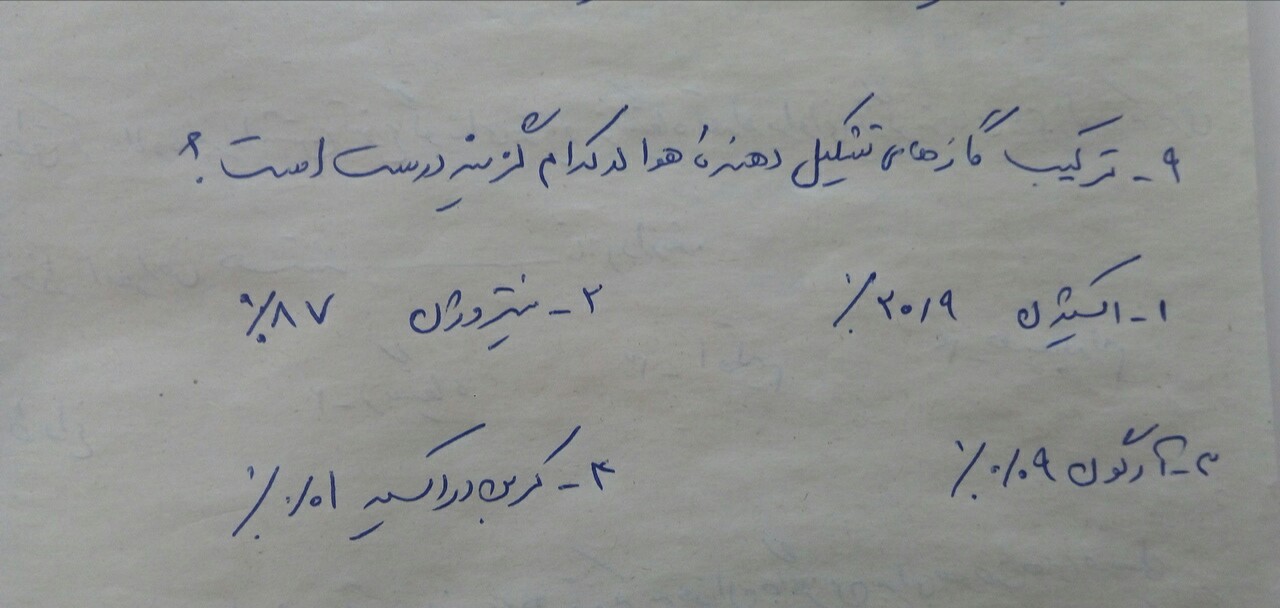 ۹- ترکیب گازهای تشکیل دهندهٔ هوا در کدام گزینه درست است؟
۱- اکسیژن ۲۰/۹ ٪ ۲- نیتروژن ۸۷٪
۳- آرگون ۰/۰۹ ٪ ۴- کربن دی اکسید ۰/۰۱ ٪